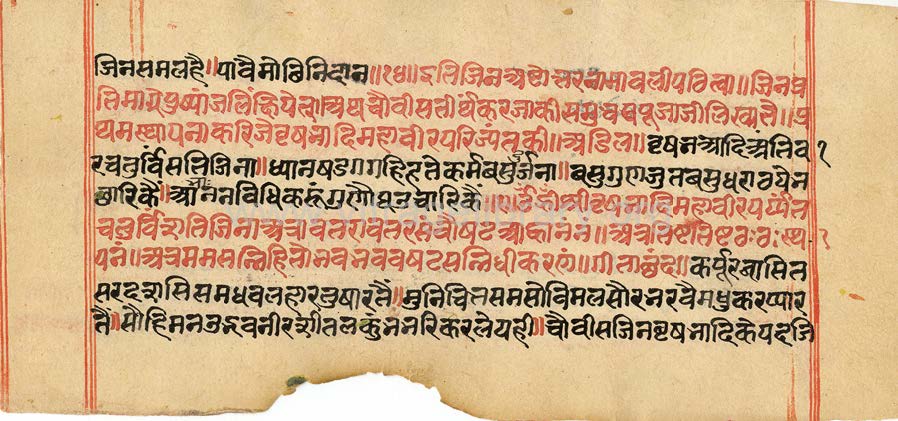 जिनसमलहै॥पावैमोछिनिदान॥१४॥इतिजिनअष्टोत्तरनामावलीपठित्वा॥जिनप्र
तिमाग्रेपुष्पांजलिंक्षिपेत्॥अथचौवीसतीर्थंकरजीकीसमुचयपूजाजीलिखतै॥प्र
थमस्थापनाकरिजैवृषभादिमहावीरपरिजंतकी॥अडिल॥वृषभआदिअंतिव
रचतुर्विंसतिजिना॥ध्यानषडगगहिहततेकर्मवसुर्जना॥वसुगुणजुतवसुधराठयेन
छारिकैं॥आंननविधिकरूंगुणौघउचारिकैं॥ॐह्रीश्रीवृषभादिमहावीरपर्य्यंत
चतुर्विंशतिजिनाअत्रावतरावतरसंवौषटआह्वाननं॥अत्रतिष्टतिष्टठःठःस्थ
पनं॥अत्रममसन्निहितोभवभववषटसन्निधीकरणं॥गीताछंद॥कर्पूरवासित
सरदशसिसमधवलहारतुषारतैं॥मुनिचितसमसोविमलसौरभरवैमधुकरप्यार
तैं॥सोहिमनउद्भवनीरशीतलकुंभभरिकरलेयही॥चौवीसजिनवृषभादिकेपदजि